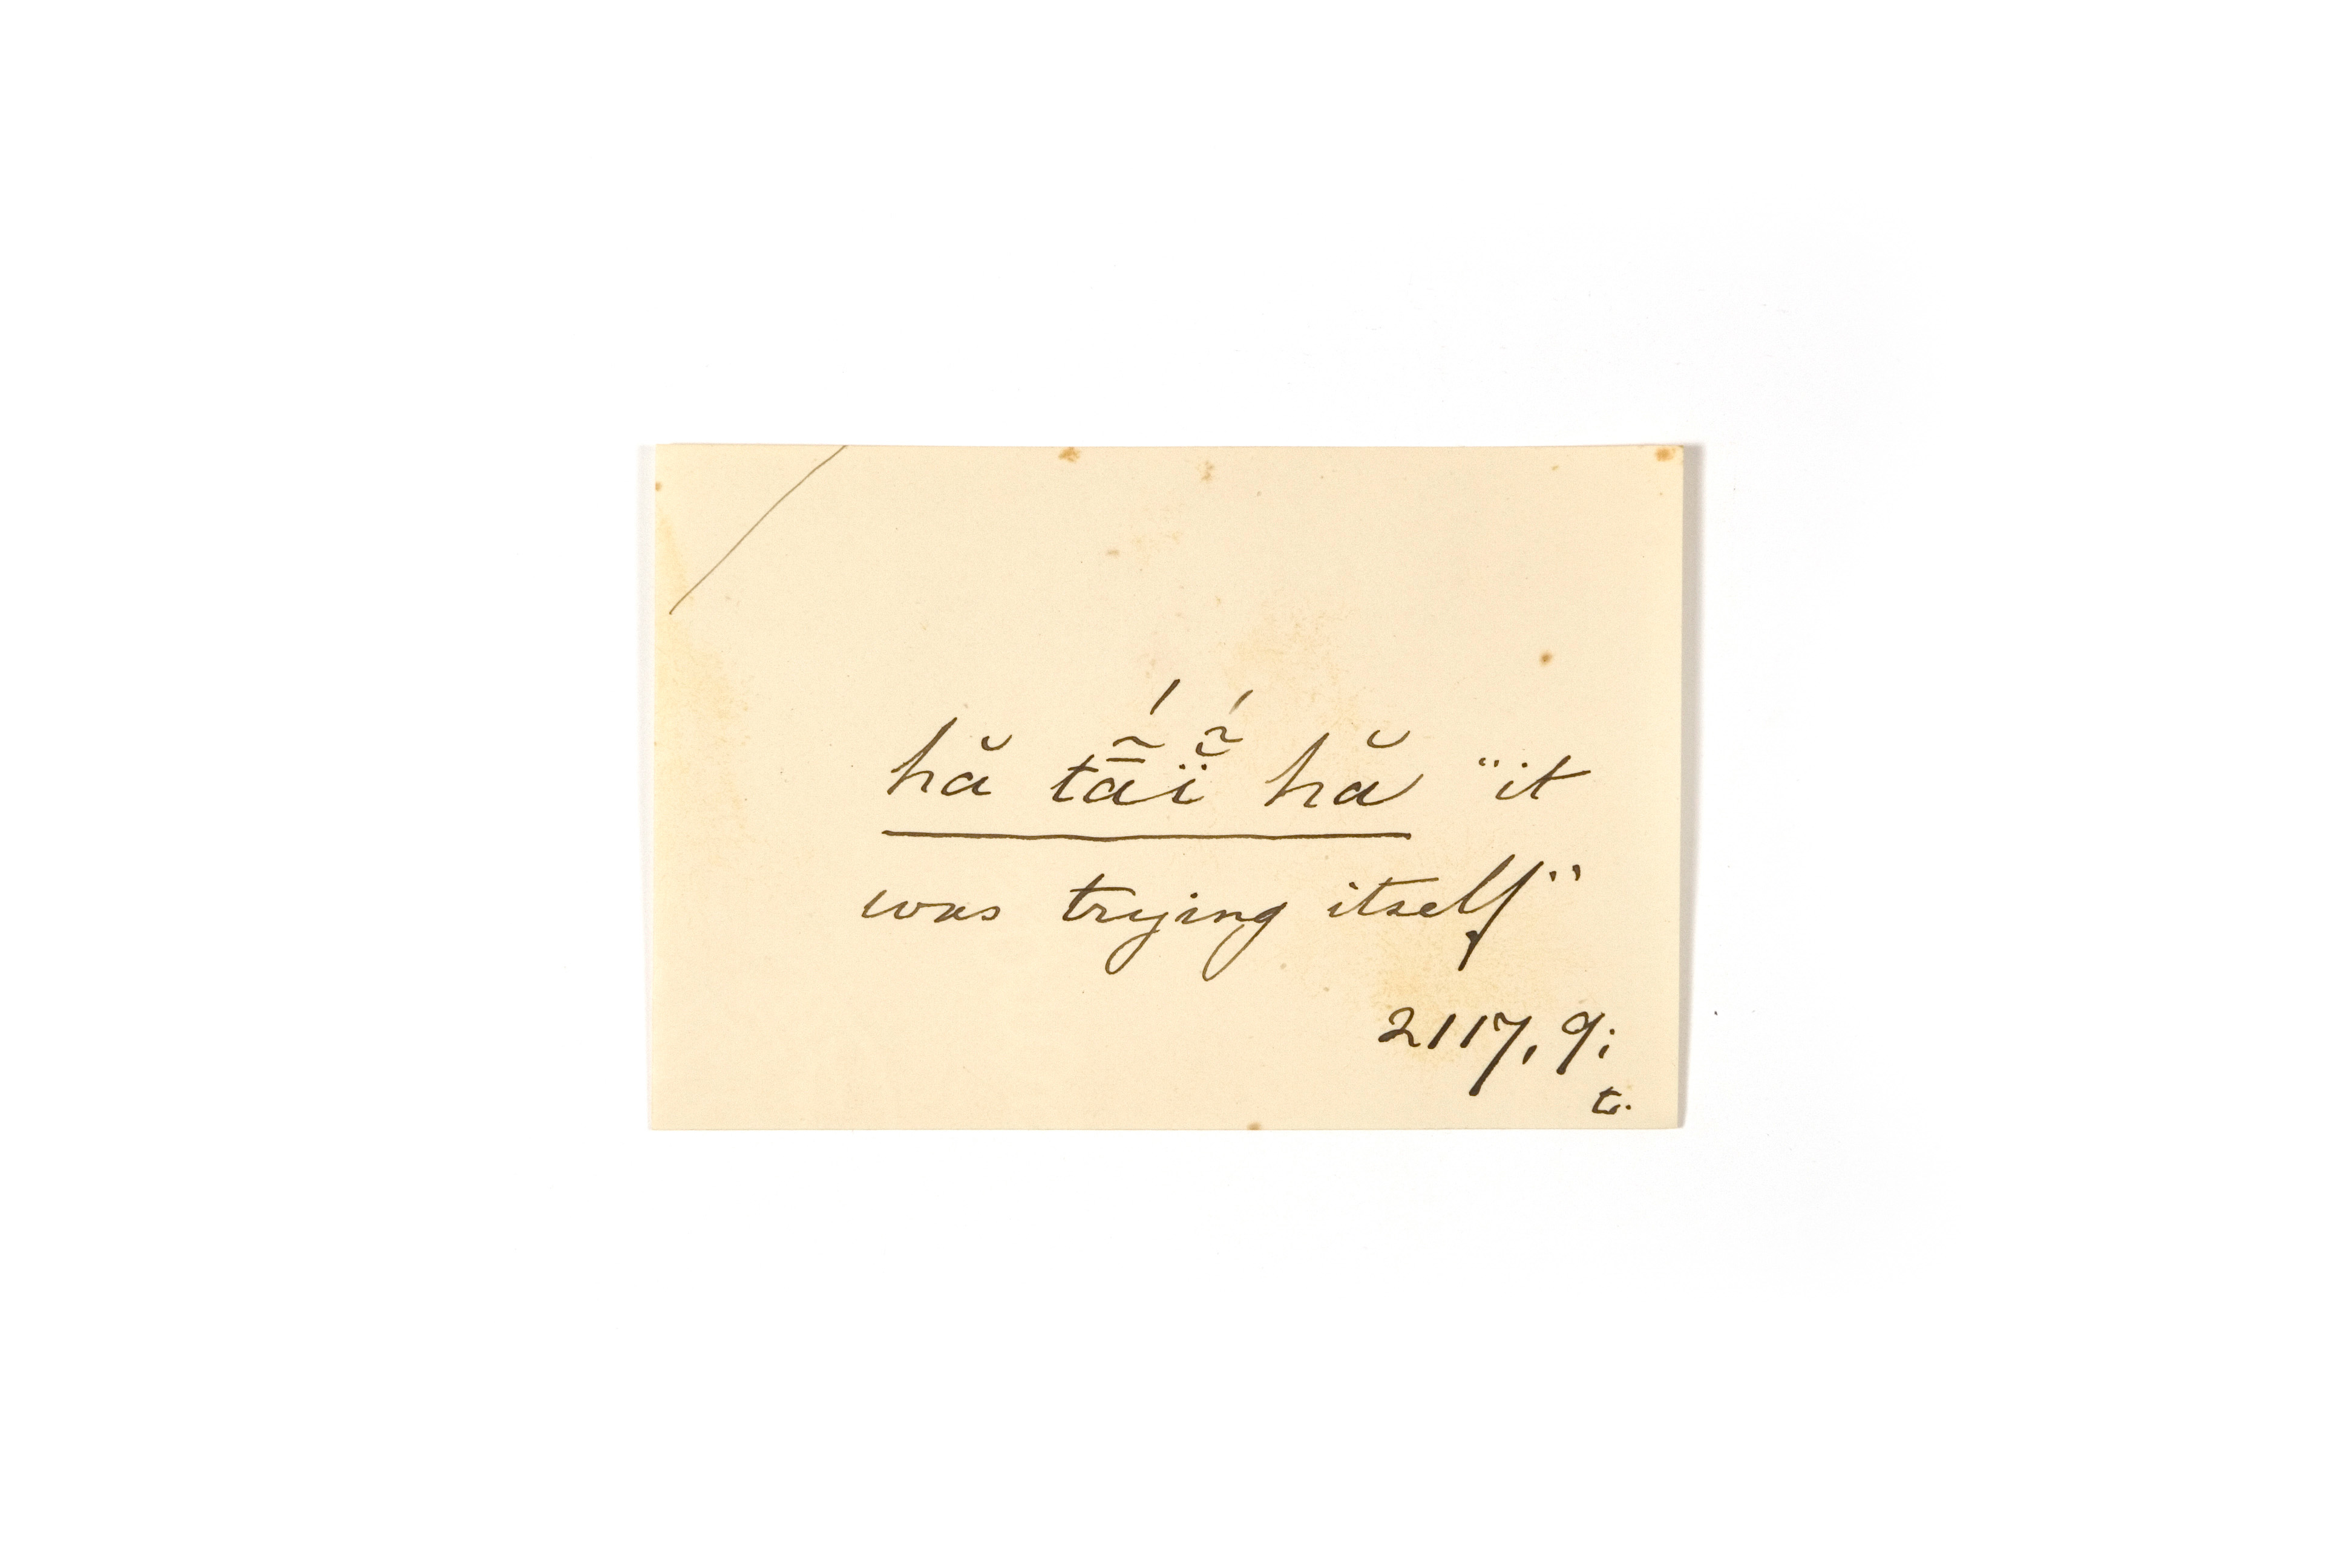 hă tā̃́ ï̯̆̃́ hă "it
was trying itself"
2117, 9;
t.